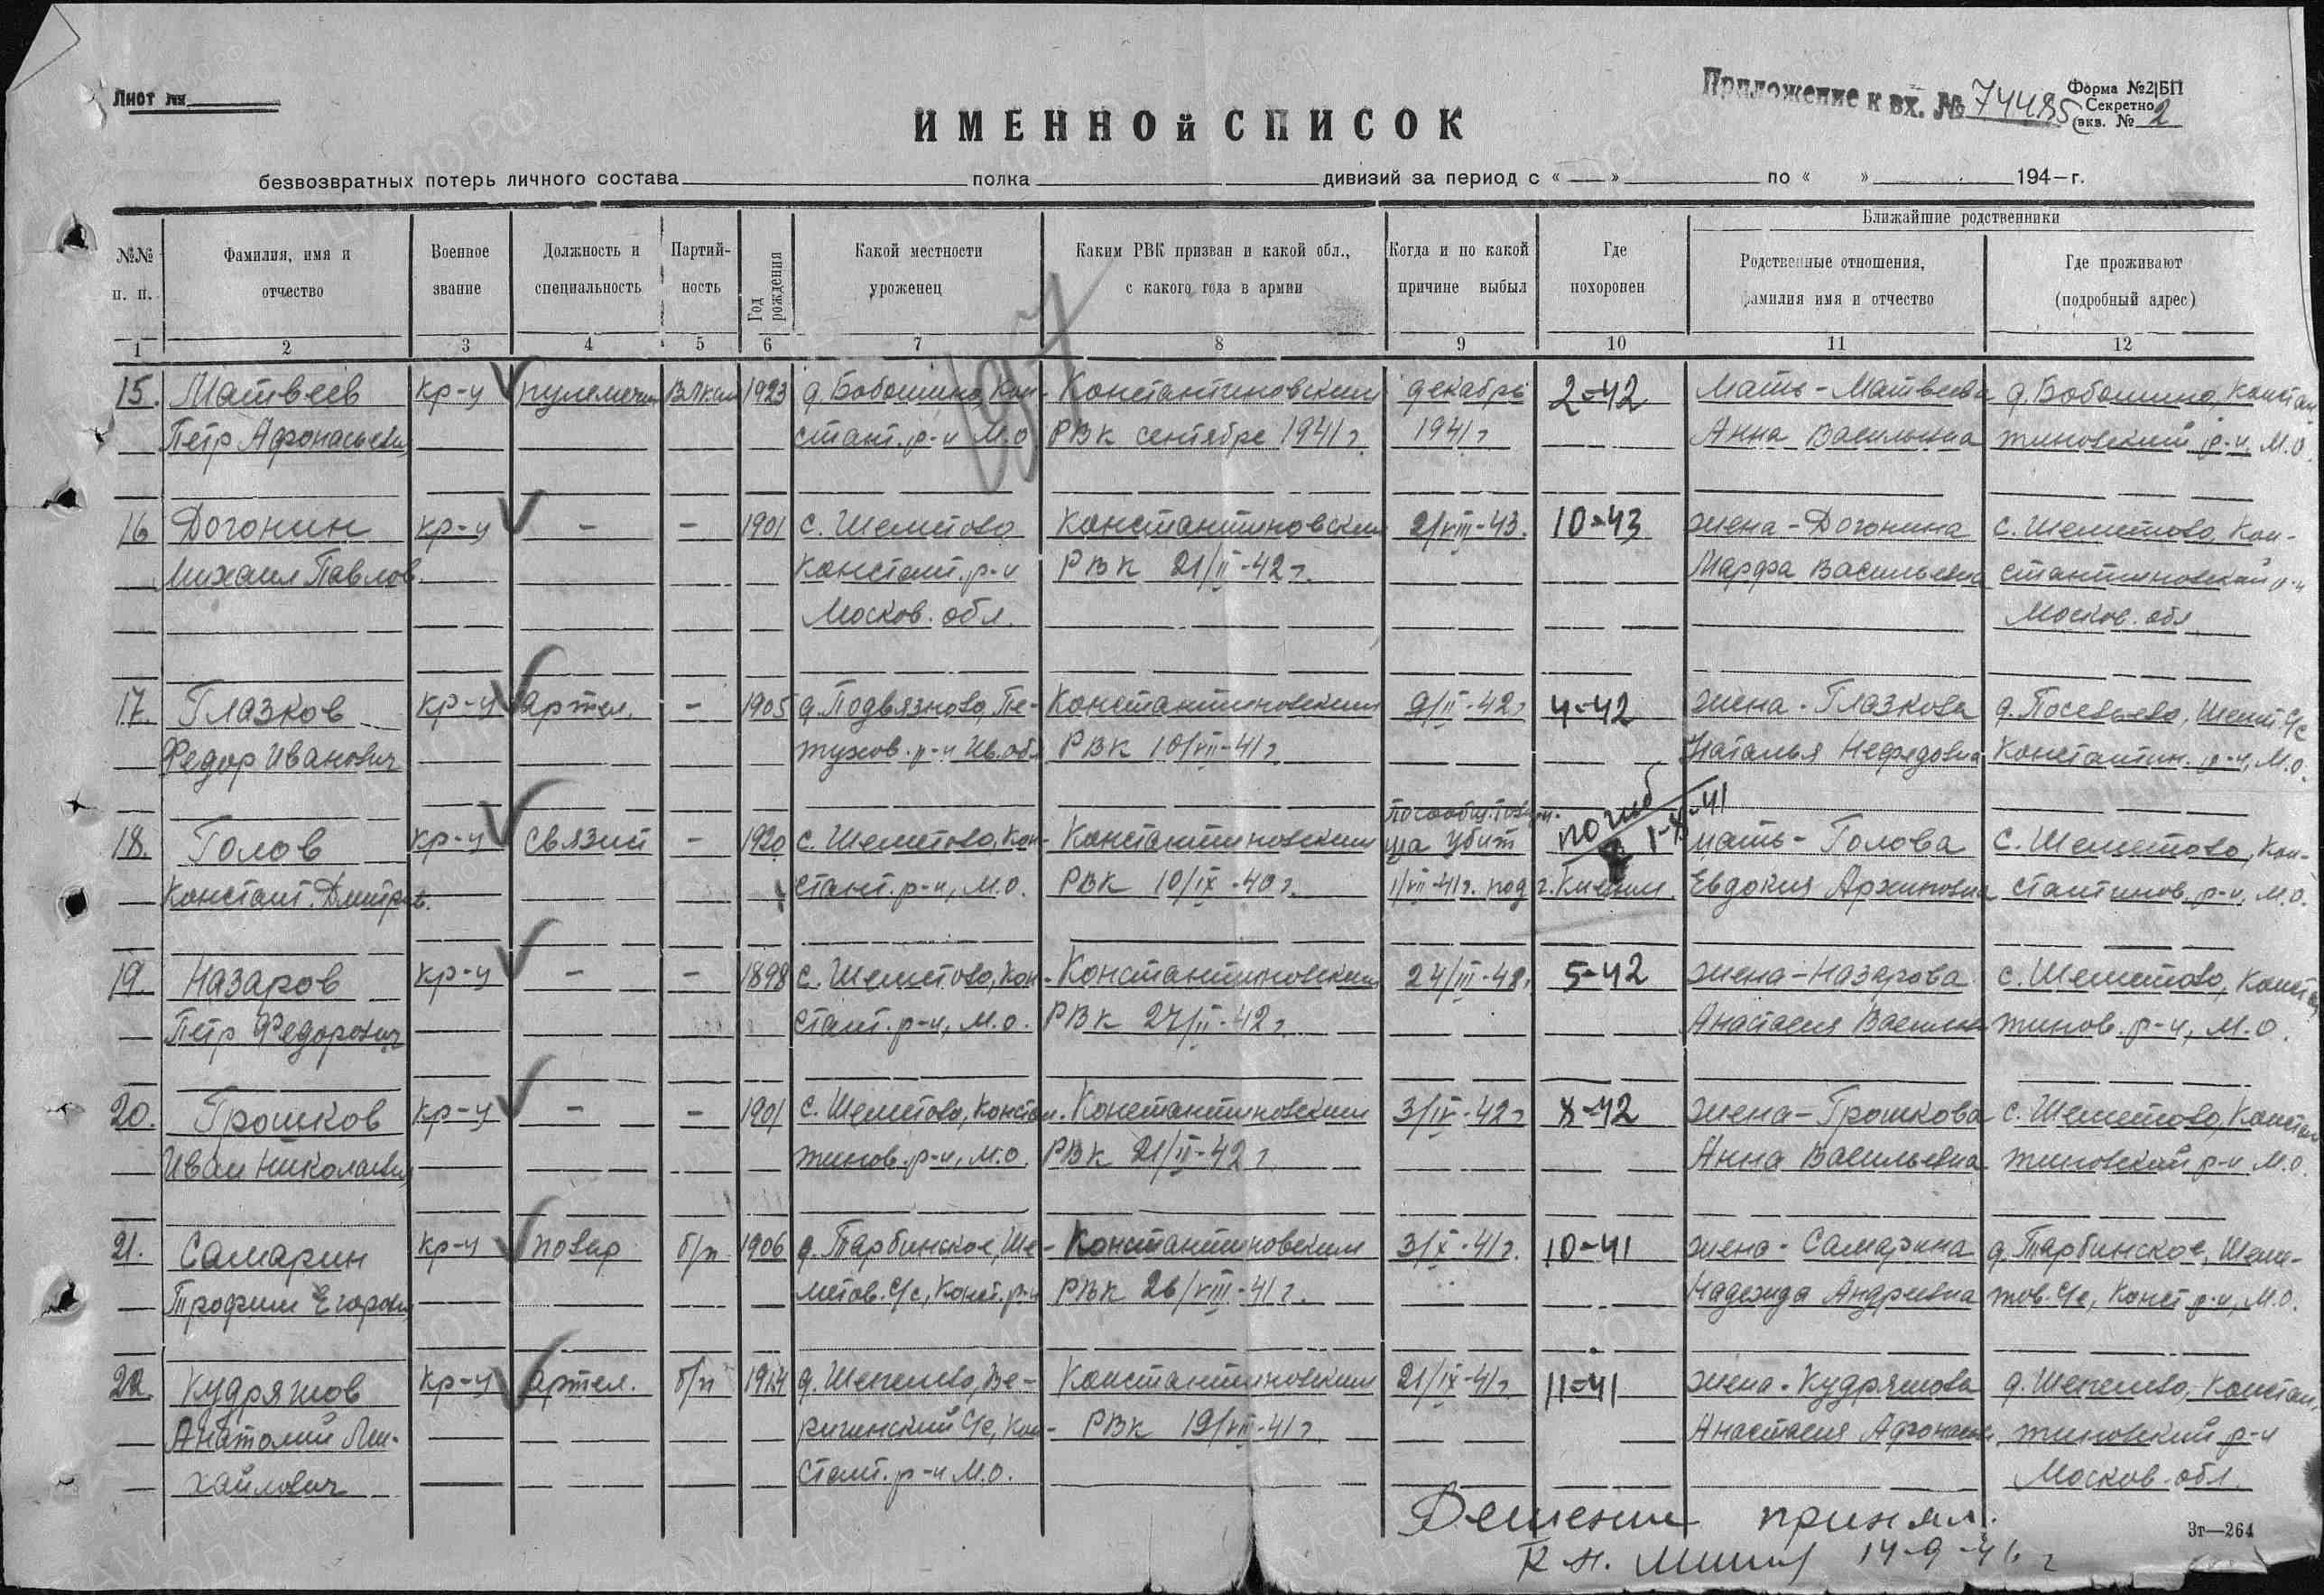 Лист №
Приложение к вх. № 74485
Форма №2|БП
Секретно
экз. № 2
ИМЕННОЙ СПИСОК
безвозвратных потерь личного состава полка дивизий за период с « — » по « » 194—г.
№№ п. п.
Фамилия, имя и отчество
Военное звание
Должность и специальность
Партий-ность
Год рождения
Какой местности уроженец
Каким РВК призван и какой обл., с какого года в армии
Когда и по какой причине выбыл
Где похоронен
Ближайшие родственники
Родственные отношения, фамилия имя и отчество
Где проживают (подробный адрес)
1 2 3 4 5 6 7 8 9 10 11 12
197
15. Матвеев кр-ц пулеметчик ВЛКСМ 1923 д. Бобошино, Кон- Константиновским декабрь 2-42 Мать - Матвеева д. Бобошино, Констан
Петр Афонасьевич стант. р-н М.О РВК сентябре 1941 г 1941 г Анна Васильевна тиновский р-н, М.О.
16 Догонин кр-ц - - 1901 с. Шеметово Константиновским 2/VIII-43. 10-43 жена - Догонина с. Шеметово, Кон-
Михаил Павлов. Констант. р-н РВК 21/II-42 г. Марфа Васильевна стантиновский р-н
Москов. обл. Москов. обл
17. Глазков кр-ц артил. - 1905 д. Подвязново, Пе- Константиновским 9/II-42 г 4-42 жена - Глазкова Шемет. С/с
Федор Иванович тухов. р-н Ив. обл РВК 10/VII-41 г Наталья Нефедовна Константин. р-н, М.О.
погиб
18. Голов кр-ц связист - 1920 с. Шеметово, Кон- Константиновским ща убит мать - Голова с. Шеметово, Кон-
Констант. Дмитриев. стант. р-н, М.О. РВК 10/IX-40 г. 1/VII-41 г. под г. Евдокия Архиповна стантинов. р-н, М.О.
19. Назаров кр-ц - - 1898 с. Шеметово, Кон- Константиновским 5-42 жена - Назарова с. Шеметово, Констан
Петр Федорович стант. р-н, М.О. РВК 27/II-42 г. Анастасия Васильев тинов. р-н, М.О.
20. Грошков кр-ц - - 1901 с. Шеметово, Констан. Константиновским 3/IV-42 г жена - Грошкова с. Шеметово, Констан
Иван Николаевич тинов. р-н, М.О. РВК 21/II-42 г. Анна Васильевна тиновский р-н М.О.
21. Самарин кр-ц повар б/п 1906 д. Тарбинское, Ше- Константиновским 3/X-41 г. 10-41 жена - Самарина д. Тарбинское, Шеме-
Трофим Егорович метов. С/с, Конст. р-н РВК 26/VIII-41 г. Надежда Андреевна тов. С/с, Конст р-н, М.О.
22. Кудряшов кр-ц артил. б/п 1914 д. Шепелево, Ве- Константиновским 21/IX-41 г. 11-41 жена - Кудряшова д. Шепелево, Констан.
Анатолий Ми- ригинский С/с, Кон- РВК 19/VII-41 г. Анастасия Афонасьев тиновский р-н
хайлович стант. р-н М.О. Москов. обл.
Решение принял.
Зт—264